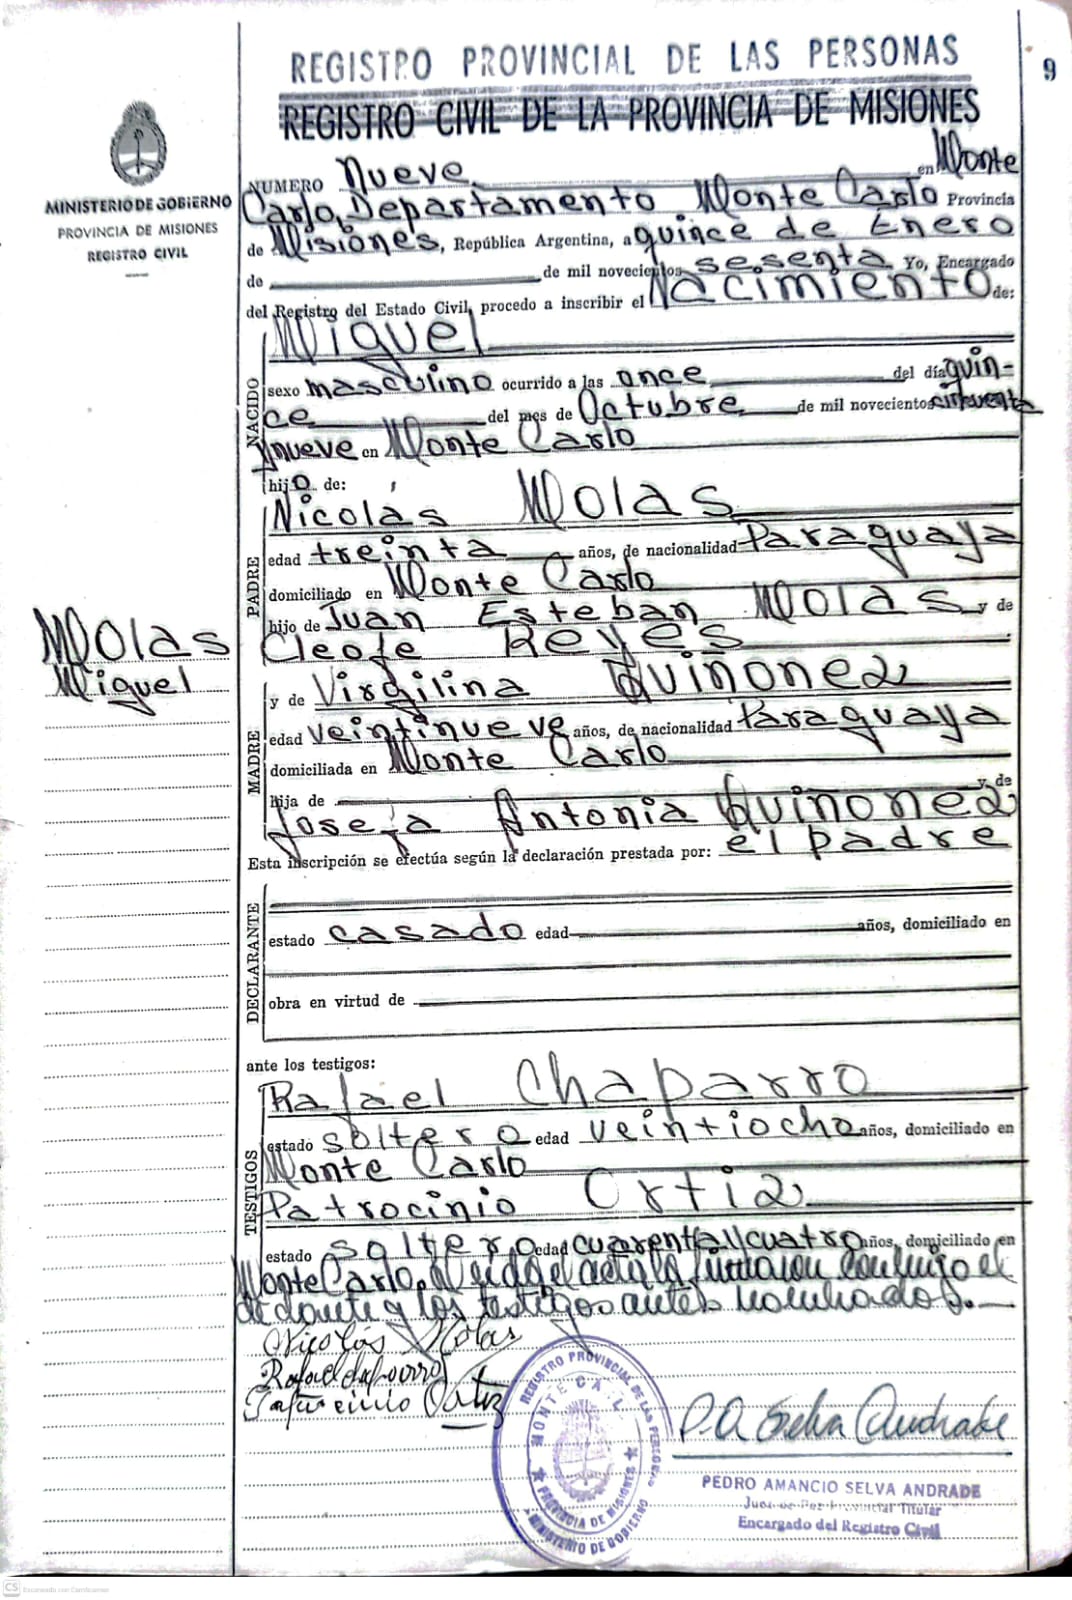 REGISTRO PROVINCIAL DE LAS PERSONAS
9
REGISTRO CIVIL DE LA PROVINCIA DE MISIONES
MINISTERIO DE GOBIERNO
PROVINCIA DE MISIONES
REGISTRO CIVIL
NUMERO Nueve en Monte
Carlo, Departamento Monte Carlo Provincia
de Misiones, República Argentina, a quince de Enero
de de mil novecientos sesenta Yo, Encargado
del Registro del Estado Civil, procedo a inscribir el Nacimiento de:
NACIDO
Miguel
sexo masculino ocurrido a las once del día quin-
ce del mes de Octubre de mil novecientos cincuenta
y nueve en Monte Carlo
hijo de:
PADRE
Nicolás Molas
edad treinta años, de nacionalidad Paraguaya
domiciliado en Monte Carlo
hijo de Juan Esteban Molas y de
Cleofe Reyes
Molas
Miguel
MADRE
y de Virgilina Quiñonez
edad veintinueve años, de nacionalidad Paraguaya
domiciliada en Monte Carlo
hija de y de
Josefa Antonia Quiñonez
Esta inscripción se efectúa según la declaración prestada por: el padre
DECLARANTE
estado casado edad años, domiciliado en
obra en virtud de
ante los testigos:
TESTIGOS
Rafael Chaparro
estado soltero edad veintiocho años, domiciliado en
Monte Carlo
Patrocinio Ortiz
estado soltero edad cuarenta y cuatro años, domiciliado en
Monte Carlo. Leida el acta la firmaron conmigo el
declarante y los testigos antes nombrados.
Nicolás Molas
Rafael Chaparro
Patrocinio Ortiz
REGISTRO PROVINCIAL DE LAS PERSONAS
MONTE CARLO
PROVINCIA DE MISIONES
MINISTERIO DE GOBIERNO
P. A. Selva Andrade
PEDRO AMANCIO SELVA ANDRADE
Juez de Paz Provincial Titular
Encargado del Registro Civil
CS Escaneado con CamScanner